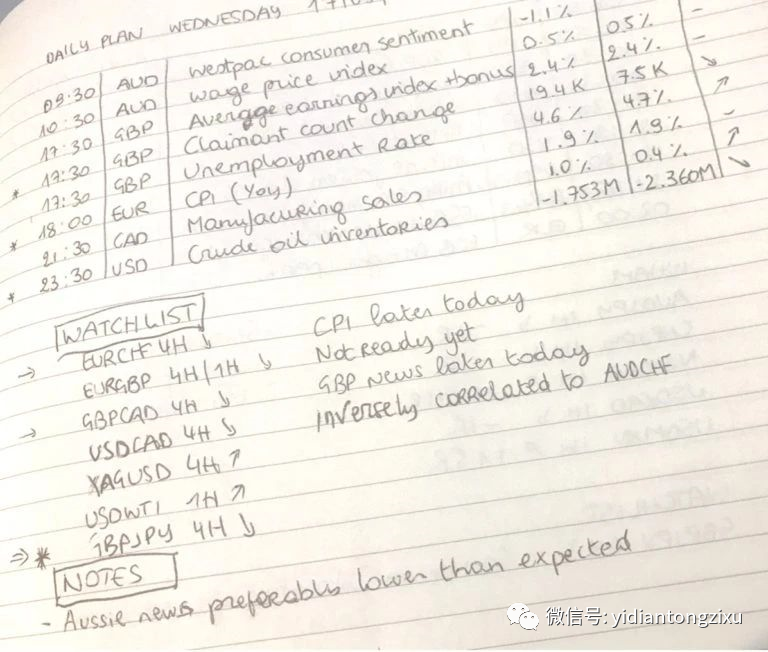 DAILY PLAN WEDNESDAY
09:30 AUD Westpac consumer sentiment -1.1%
10:30 AUD wage price index 0.5% 0.5% -
17:30 GBP Average earnings index +bonus 2.4% 2.4% -
* 17:30 GBP Claimant count change 19.4K 7.5K ↘
17:30 GBP Unemployment Rate 4.6% 4.7% ↗
* 18:00 EUR CPI (YoY) 1.9% 1.9% -
21:30 CAD Manufacuring sales 1.0% 0.4% ↗
* 23:30 USD Crude oil inventories -1.753M -2.360M ↘
WATCHLIST
→ EURCHF 4H ↘ CPI later today
EURGBP 4H/1H ↘ Not ready yet
→ GBPCAD 4H ↘ GBP news later today
USDCAD 4H ↘ inversely correlated to AUDCHF
XAGUSD 4H ↗
USOWTI 1H ↗
⇒ * GBPJPY 4H ↘
NOTES
- Aussie news preferably lower than expected
微信号: yidiantongzixu